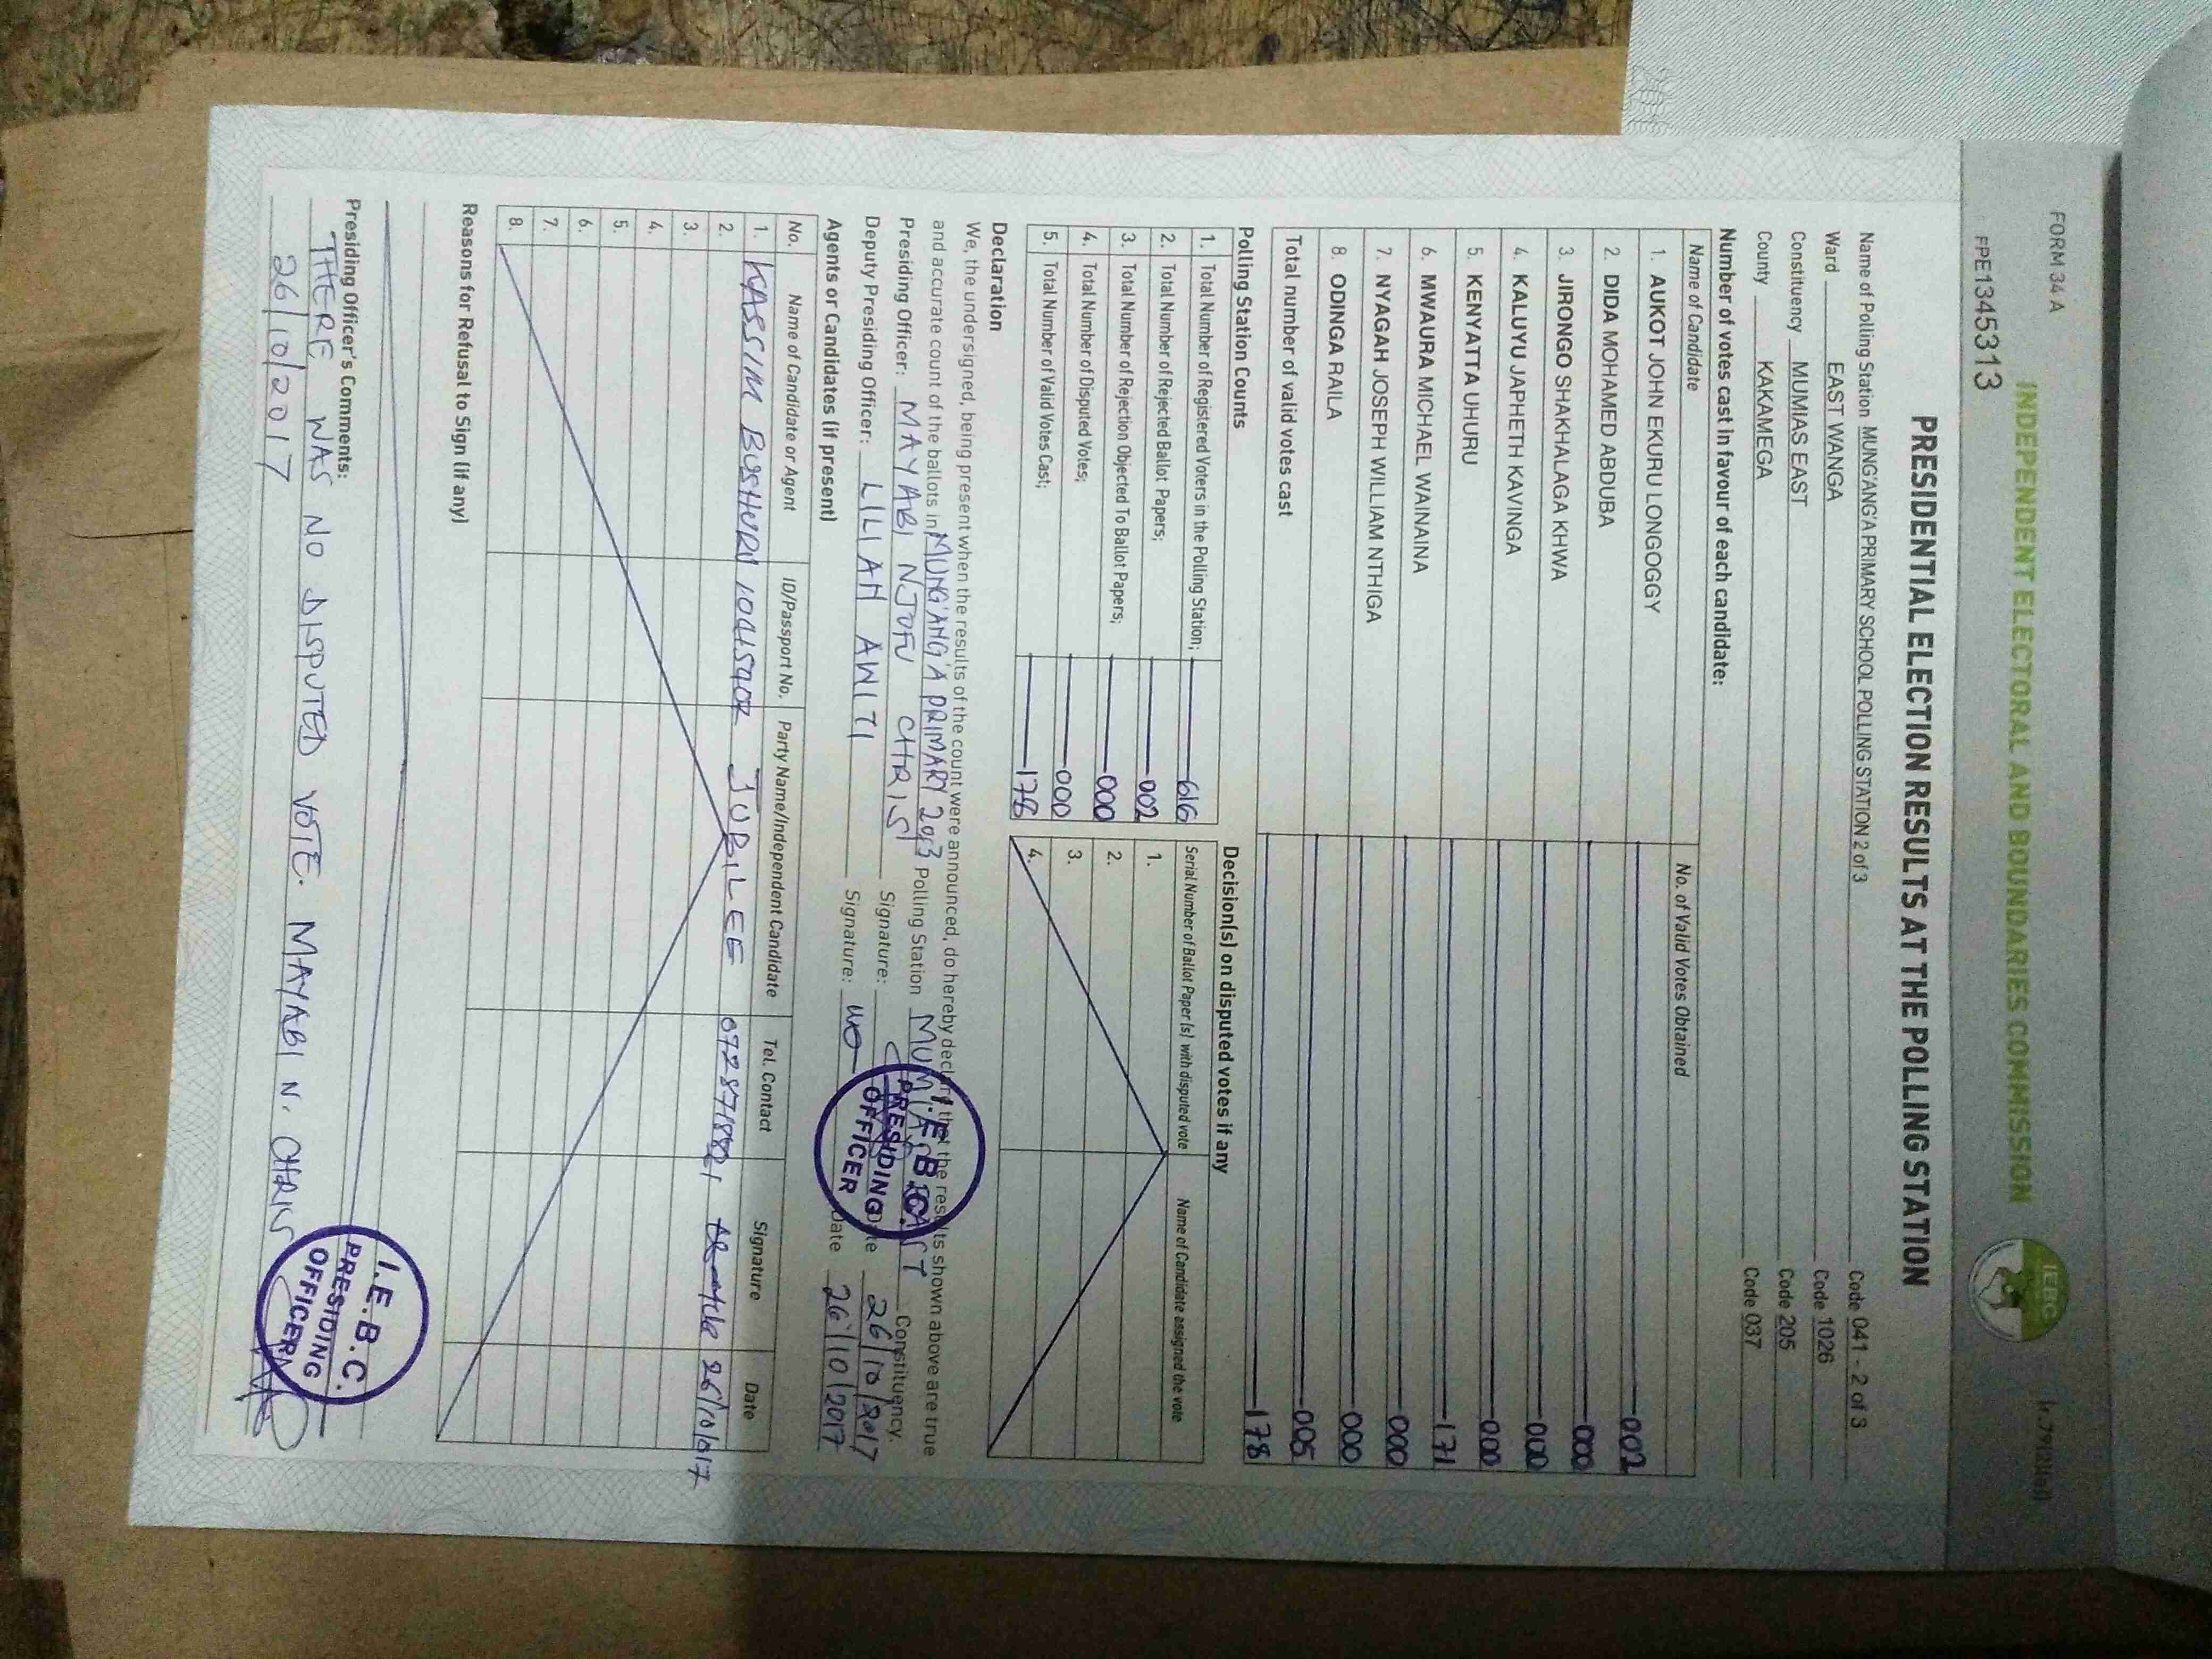 FORM 34 A
INDEPENDENT ELECTORAL AND BOUNDARIES COMMISSION
IEBC
FPE1345313
PRESIDENTIAL ELECTION RESULTS AT THE POLLING STATION
Name of Polling Station MUNG'ANG'A PRIMARY SCHOOL POLLING STATION 2 of 3 Code 041 - 2 of 3
Ward EAST WANGA Code 1026
Constituency MUMIAS EAST Code 205
County KAKAMEGA Code 037
Number of votes cast in favour of each candidate:
Name of Candidate No. of Valid Votes Obtained
1. AUKOT JOHN EKURU LONGOGGY 002
2. DIDA MOHAMED ABDUBA 000
3. JIRONGO SHAKHALAGA KHWA 000
4. KALUYU JAPHETH KAVINGA 000
5. KENYATTA UHURU 171
6. MWAURA MICHAEL WAINAINA 000
7. NYAGAH JOSEPH WILLIAM NTHIGA 000
8. ODINGA RAILA 005
Total number of valid votes cast 178
Polling Station Counts
1. Total Number of Registered Voters in the Polling Station; 616
2. Total Number of Rejected Ballot Papers; 002
3. Total Number of Rejection Objected To Ballot Papers; 000
4. Total Number of Disputed Votes; 000
5. Total Number of Valid Votes Cast; 178
Decision(s) on disputed votes if any
Serial Number of Ballot Paper (s) with disputed vote Name of Candidate assigned the vote
1.
2.
3.
4.
Declaration
We, the undersigned, being present when the results of the count were announced, do hereby declare that the results shown above are true
and accurate count of the ballots in MUNG'ANG'A PRIMARY 2of3 Polling Station MUMIAS EAST Constituency.
Presiding Officer: MAYABI NJOFU CHRIS Signature: Date 26/10/2017
Deputy Presiding Officer: LILIAN AWITI Signature: Date 26/10/2017
I.E.B.C.
PRESIDING
OFFICER
Agents or Candidates (if present)
No. Name of Candidate or Agent ID/Passport No. Party Name/Independent Candidate Tel. Contact Signature Date
1. KASSIM JUBILEE
2.
3.
4.
5.
6.
7.
8.
Reasons for Refusal to Sign (if any)
Presiding Officer's Comments:
THERE WAS NO DISPUTED VOTE. MAYABI N. CHRIS
26/10/2017
I.E.B.C.
PRESIDING
OFFICER